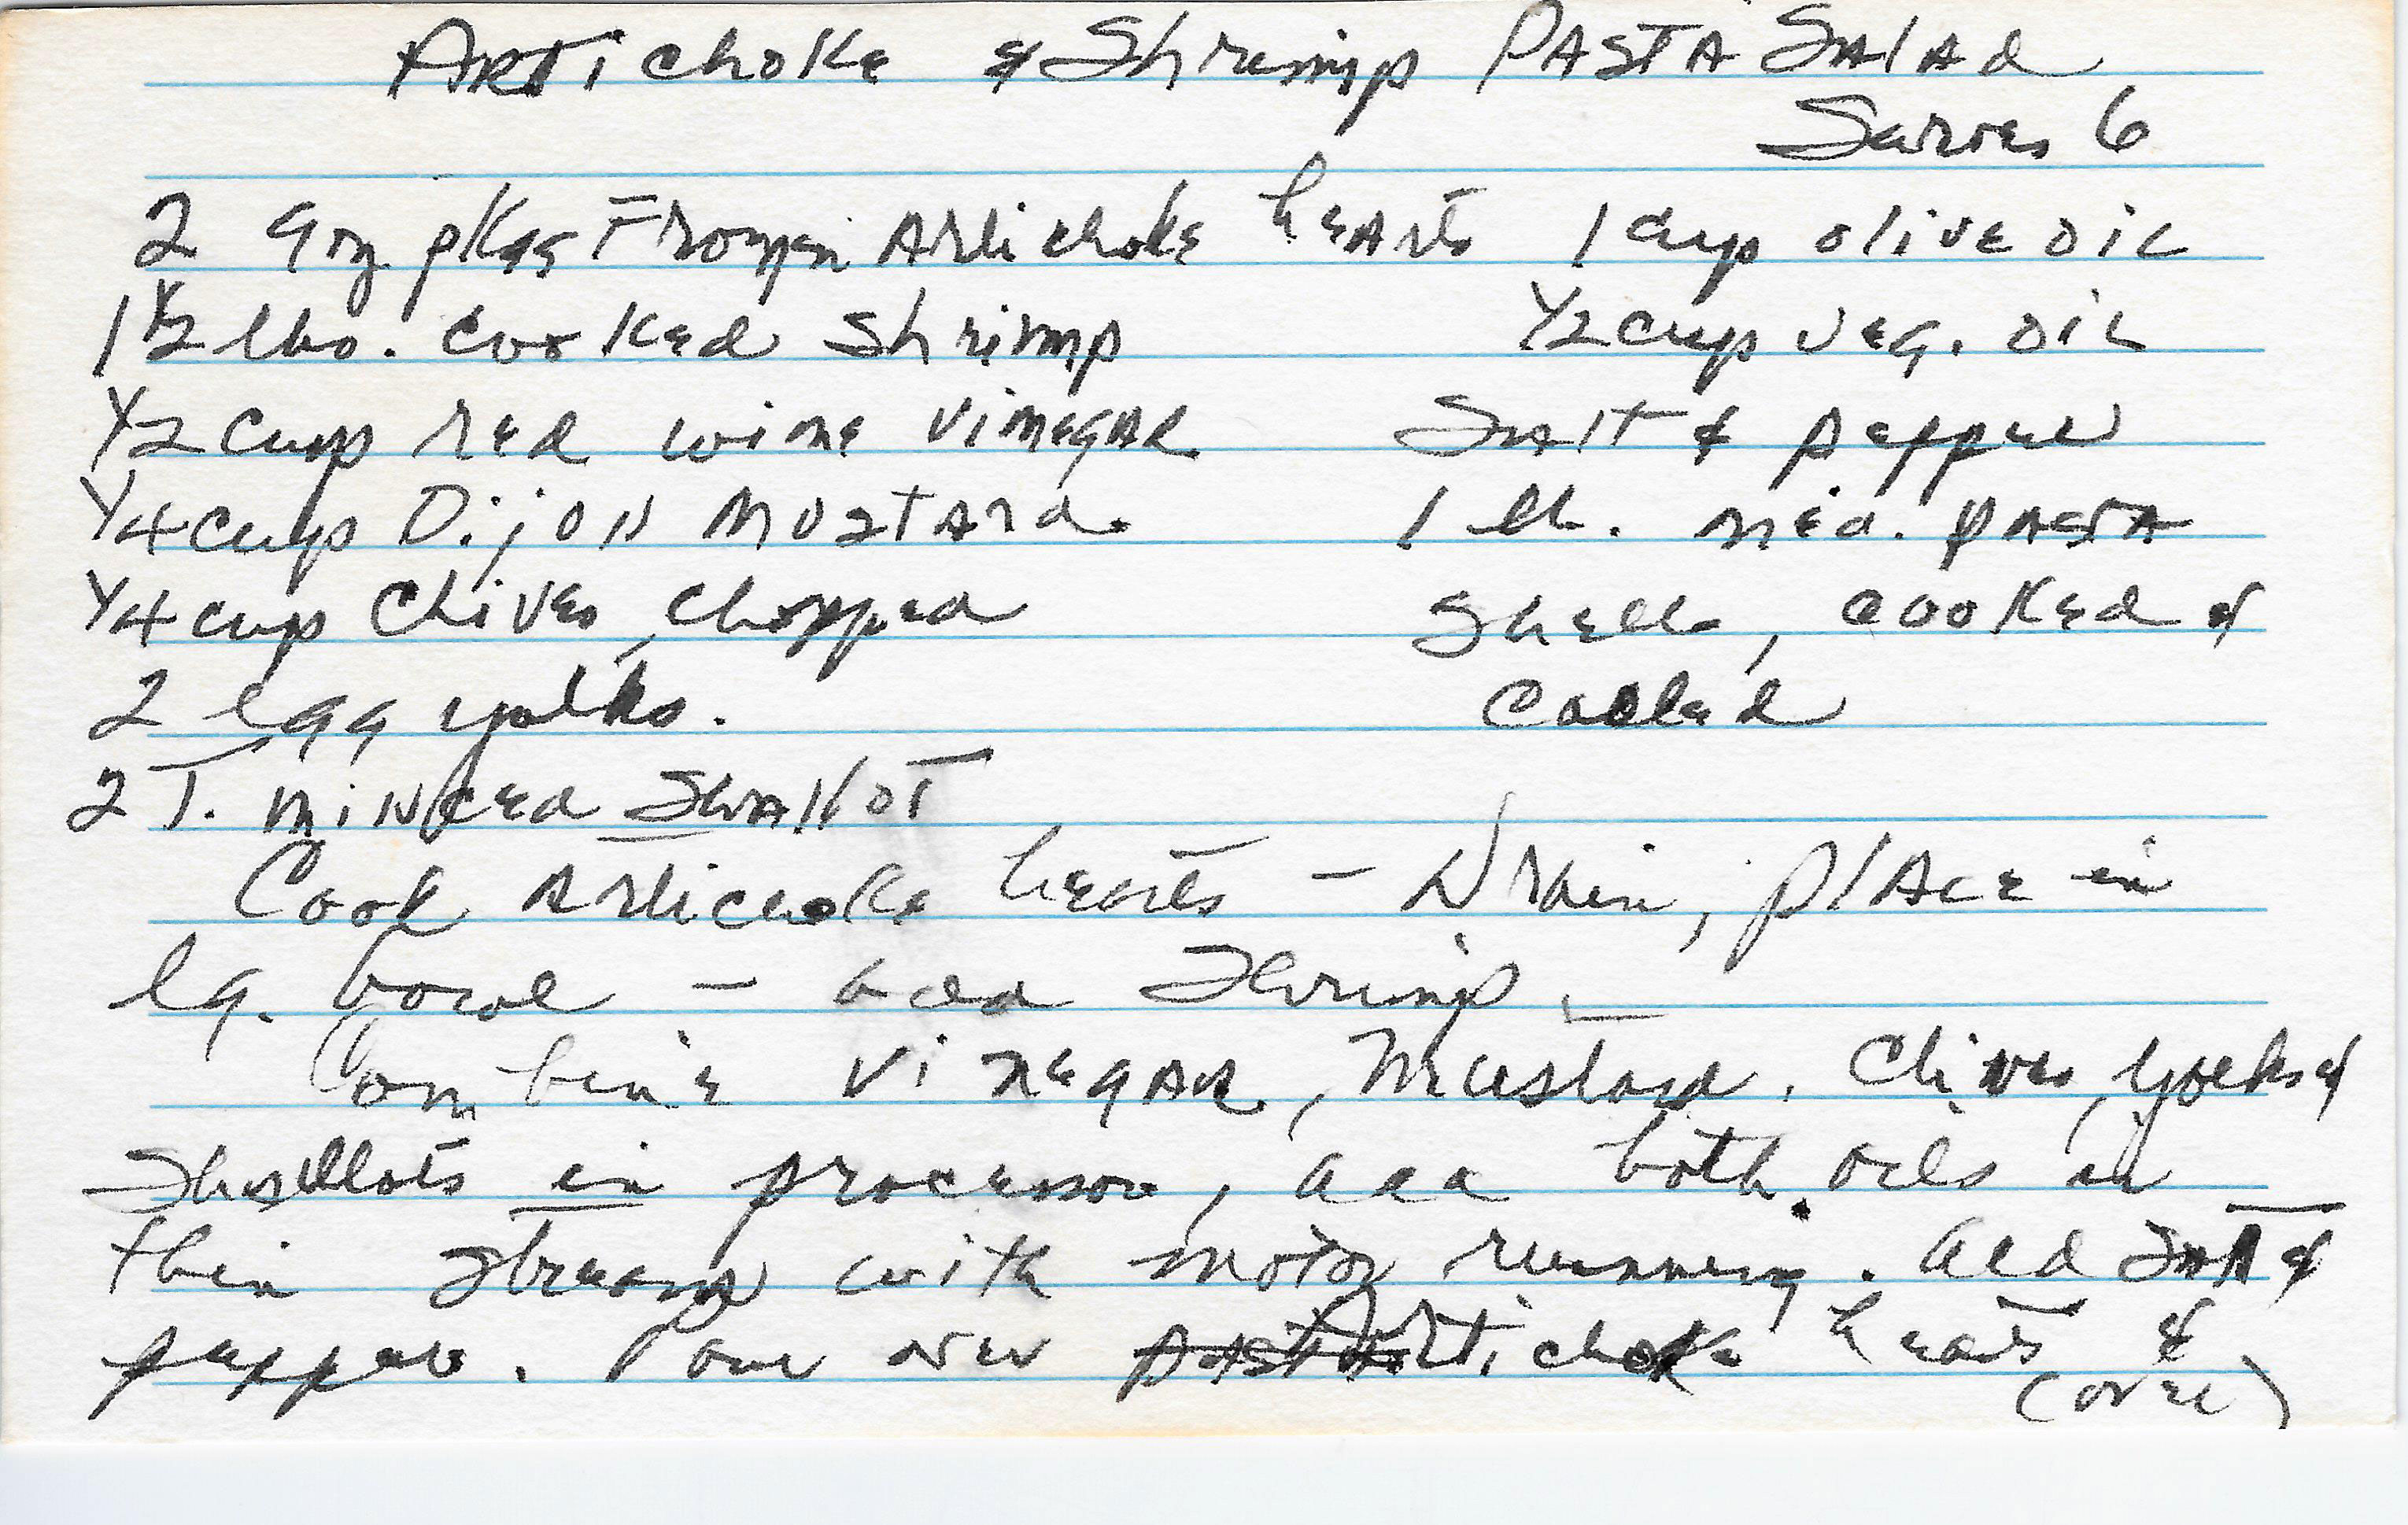 Artichoke & Shrimp Pasta Salad
Serves 6
2 9oz pkgs Frozen Artichoke hearts 1 cup olive oil
1 1/2 lbs. cooked shrimp 1/2 cup veg. oil
1/2 cup red wine vinegar Salt & pepper
1/4 cup Dijon mustard. 1 lb. med. pasta
1/4 cup Chives, chopped Shells, cooked &
2 egg yolks. cooled
2 T. minced shallot
Cook Artichoke hearts - Drain, place in
lg. bowl - add Shrimp.
Combine vinegar, Mustard, Chives, yolks &
Shallots in processor, add both oils in
thin stream with motor running. Add salt &
pepper. Pour over Artichoke hearts &
(over)